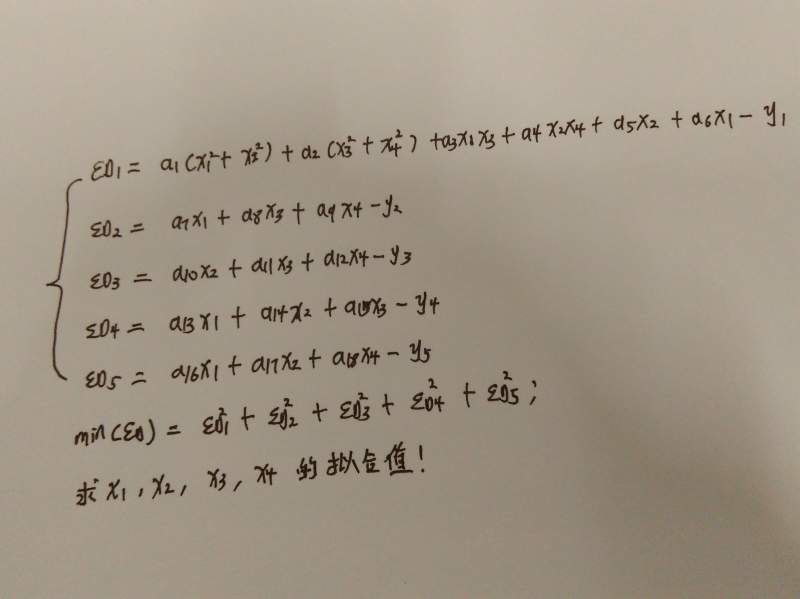 ED₁ = a₁(x₁²+ x₂²) + a₂(x₃² + x₄²) + a₃x₁x₃ + a₄x₂x₄ + a₅x₂ + a₆x₁ - y₁
ED₂ = a₇x₁ + a₈x₃ + a₉x₄ - y₂
ED₃ = a₁₀x₂ + a₁₁x₃ + a₁₂x₄ - y₃
ED₄ = a₁₃x₁ + a₁₄x₂ + a₁₅x₃ - y₄
ED₅ = a₁₆x₁ + a₁₇x₂ + a₁₈x₄ - y₅
min(ED) = ED₁² + ED₂² + ED₃² + ED₄² + ED₅²;
求 x₁, x₂, x₃, x₄ 的拟合值!